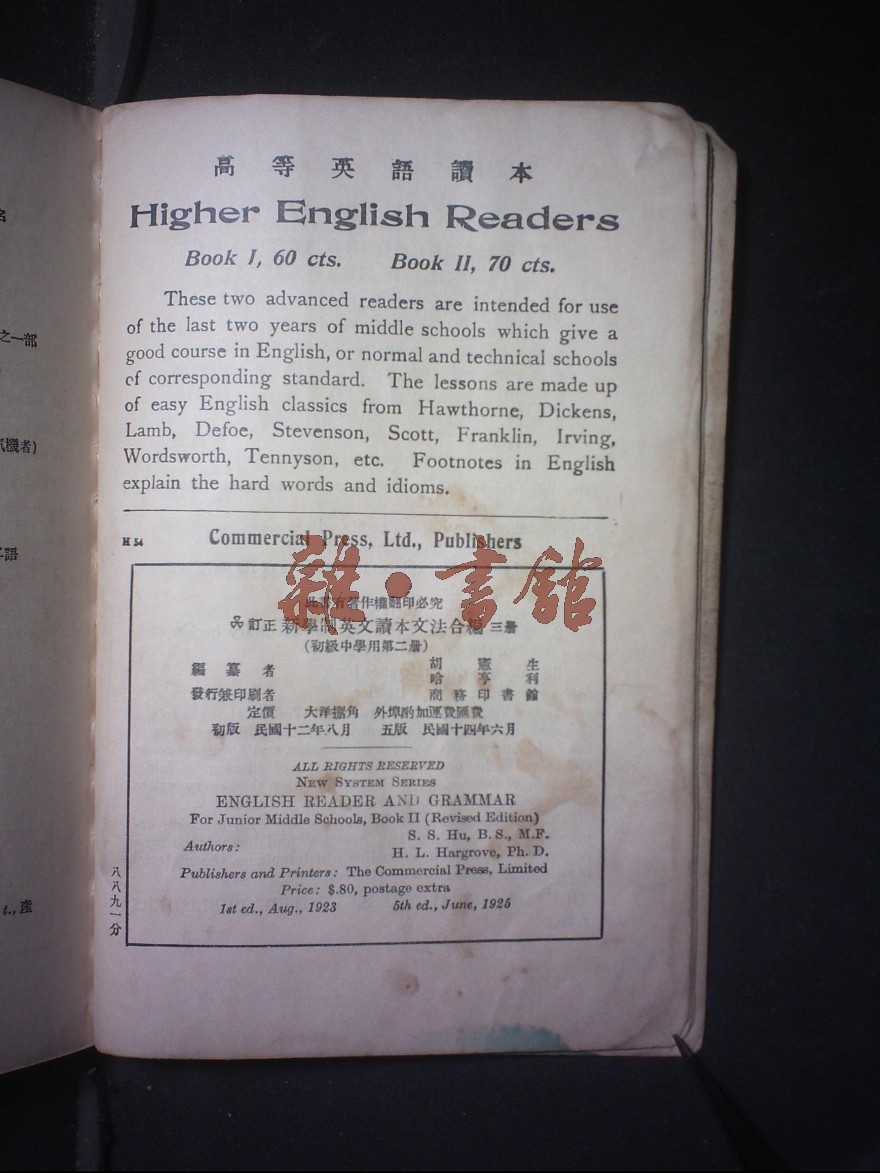 名
之一部
汽機者)
t., 產
高等英語讀本
Higher English Readers
Book I, 60 cts. Book II, 70 cts.
These two advanced readers are intended for use
of the last two years of middle schools which give a
good course in English, or normal and technical schools
of corresponding standard. The lessons are made up
of easy English classics from Hawthorne, Dickens,
Lamb, Defoe, Stevenson, Scott, Franklin, Irving,
Wordsworth, Tennyson, etc. Footnotes in English
explain the hard words and idioms.
H 54 Commercial Press, Ltd., Publishers
雜·書館
此書有著作權翻印必究
訂正 新學制英文讀本文法合編 三册
(初級中學用第二册)
編纂者 胡憲生
哈亨利
發行兼印刷者 商務印書館
定價 大洋捌角 外埠酌加運費匯費
初版 民國十二年八月 五版 民國十四年六月
ALL RIGHTS RESERVED
NEW SYSTEM SERIES
ENGLISH READER AND GRAMMAR
For Junior Middle Schools, Book II (Revised Edition)
Authors: S. S. Hu, B. S., M.F.
H. L. Hargrove, Ph. D.
Publishers and Printers: The Commercial Press, Limited
Price: $.80, postage extra
1st ed., Aug., 1923 5th ed., June, 1925
八八九一分